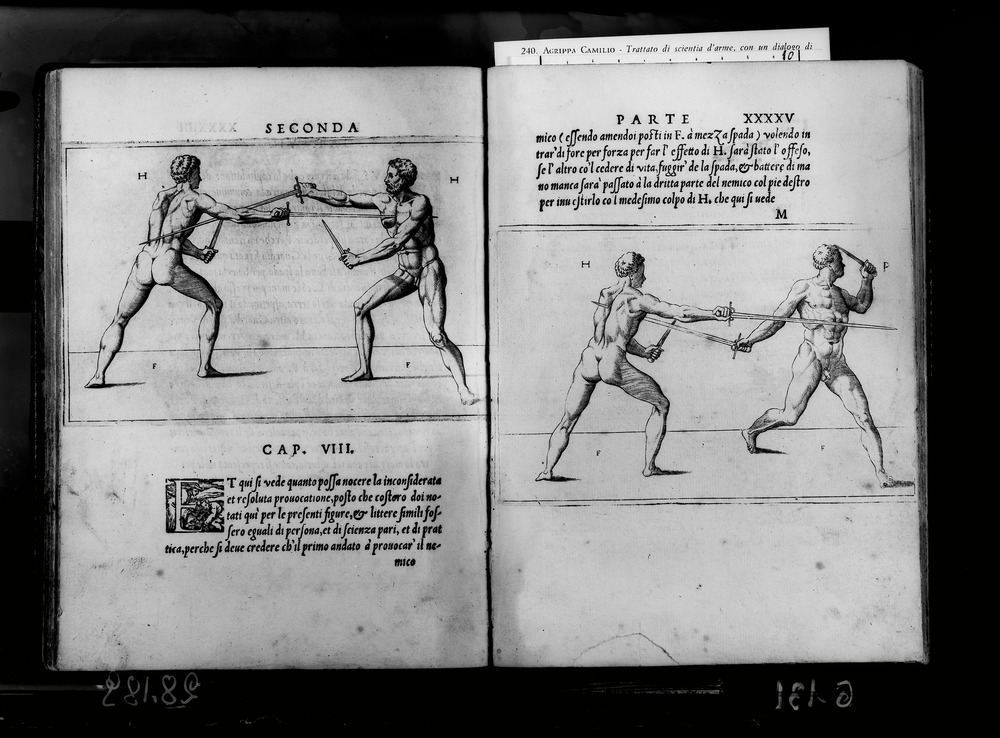 240. AGRIPPA CAMILIO - Trattato di scientia d'arme, con un dialogo di
10
SECONDA
H
H
F
F
CAP. VIII.
ET qui si vede quanto possa nocere la inconsiderata
et resoluta prouocatione, posto che costoro doi no-
tati qui per le presenti figure, & littere simili fos-
sero eguali di persona, et di scienza pari, et di prat
tica, perche si deue credere ch'il primo andato à prouocar' il ne-
mico
PARTE XXXXV
mico (essendo amendoi posti in F. à mezza spada) volendo in
trar' di fore per forza per far l' effetto di H. sarà stato l' offeso,
se l' altro co'l cedere di vita, fuggir' de la spada, & battere di ma
no manca sarà passato à la dritta parte del nemico col pie destro
per inuestirlo co l medesimo colpo di H. che qui si uede
M
H
P
F
F
28.189
G 131